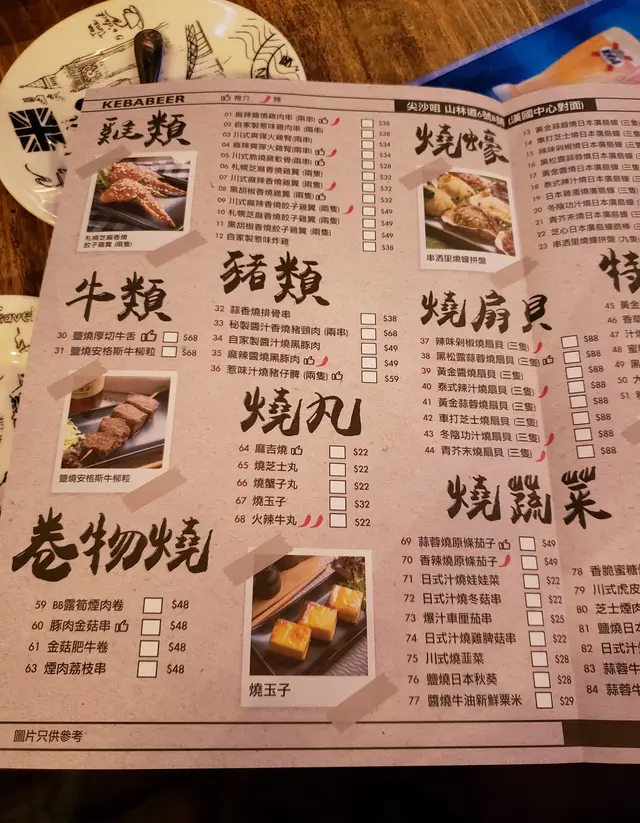 KEBABEER
推介 辣
尖沙咀 山林道6號B舖 (漢國中心對面)
雞類
札幌芝麻香燒
餃子雞翼 (兩隻)
01 麻辣醬燒雞肉串 (兩串) $38
02 自家製惹味雞肉串 (兩串) $38
03 川式爽彈火雞腎 (兩串) $34
04 麻辣爽彈火雞腎 (兩串) $34
05 川式脆燒雞軟骨 (兩串) $28
06 札幌芝麻香燒雞翼 (兩隻) $32
07 川式麻辣香燒雞翼 (兩隻) $32
08 黑胡椒香燒雞翼 (兩隻) $32
09 川式麻辣香燒餃子雞翼 (兩隻) $49
10 札幌芝麻香燒餃子雞翼 (兩隻) $49
11 黑胡椒香燒餃子雞翼 (兩隻) $49
12 自家製惹味炸雞 $38
燒生蠔
串酒里燒蠔拼盤
13 黃金蒜蓉燒日本廣島蠔 (三隻
14 車打芝士燒日本廣島蠔 (三隻
15 辣味剁椒燒日本廣島蠔 (三隻
16 黑松露蒜蓉燒日本廣島蠔 (三隻
17 黃金醬燒日本廣島蠔 (三隻
18 泰式辣汁燒日本廣島蠔 (三隻
19 日本雜重燒廣島蠔 (三隻
20 冬陰功汁燒日本廣島蠔 (三
21 青芥末燒日本廣島蠔 (三隻
22 芝心日本廣島蠔
23 串酒里燒蠔拼盤 (九隻
牛類
30 鹽燒厚切牛舌 $68
31 鹽燒安格斯牛柳粒 $68
鹽燒安格斯牛柳粒
豬類
32 蒜香燒排骨串 $38
33 秘製醬汁香燒豬頸肉 (兩串) $68
34 自家製醬汁燒黑豚肉 $49
35 麻辣醬燒黑豚肉 $49
36 惹味汁燒豬仔髀 (兩隻) $59
燒扇貝
37 辣味剁椒燒扇貝 (三隻) $88
38 黑松露蒜蓉燒扇貝 (三隻) $88
39 黃金醬燒扇貝 (三隻) $88
40 泰式辣汁燒扇貝 (三隻) $88
41 黃金蒜蓉燒扇貝 (三隻) $88
42 車打芝士燒扇貝 (三隻) $88
43 冬陰功汁燒扇貝 (三隻) $88
44 青芥末燒扇貝 (三隻) $88
特
45 黃金
46 香草
47 汁燒
48 蜜
49 黑
50 大
51
燒丸
64 麻吉燒 $22
65 燒芝士丸 $22
66 燒蟹子丸 $22
67 燒玉子 $32
68 火辣牛丸 $22
燒玉子
卷物燒
59 BB露筍煙肉卷 $48
60 豚肉金菇串 $48
61 金菇肥牛卷 $48
63 煙肉荔枝串 $48
燒蔬菜
69 蒜蓉燒原條茄子 $49
70 香辣燒原條茄子 $49
71 日式汁燒娃娃菜 $22
72 日式汁燒冬菇串 $22
73 爆汁車厘茄串 $25
74 日式汁燒雞脾菇串 $22
75 川式燒韮菜 $28
76 鹽燒日本秋葵 $28
77 醬燒牛油新鮮粟米 $29
78 香脆蜜糖
79 川式虎皮
80 芝士煙肉
81 鹽燒日本
82 日式汁燒
83 蒜蓉牛
84 蒜蓉牛
圖片只供參考